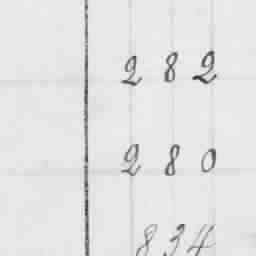 282
280
834